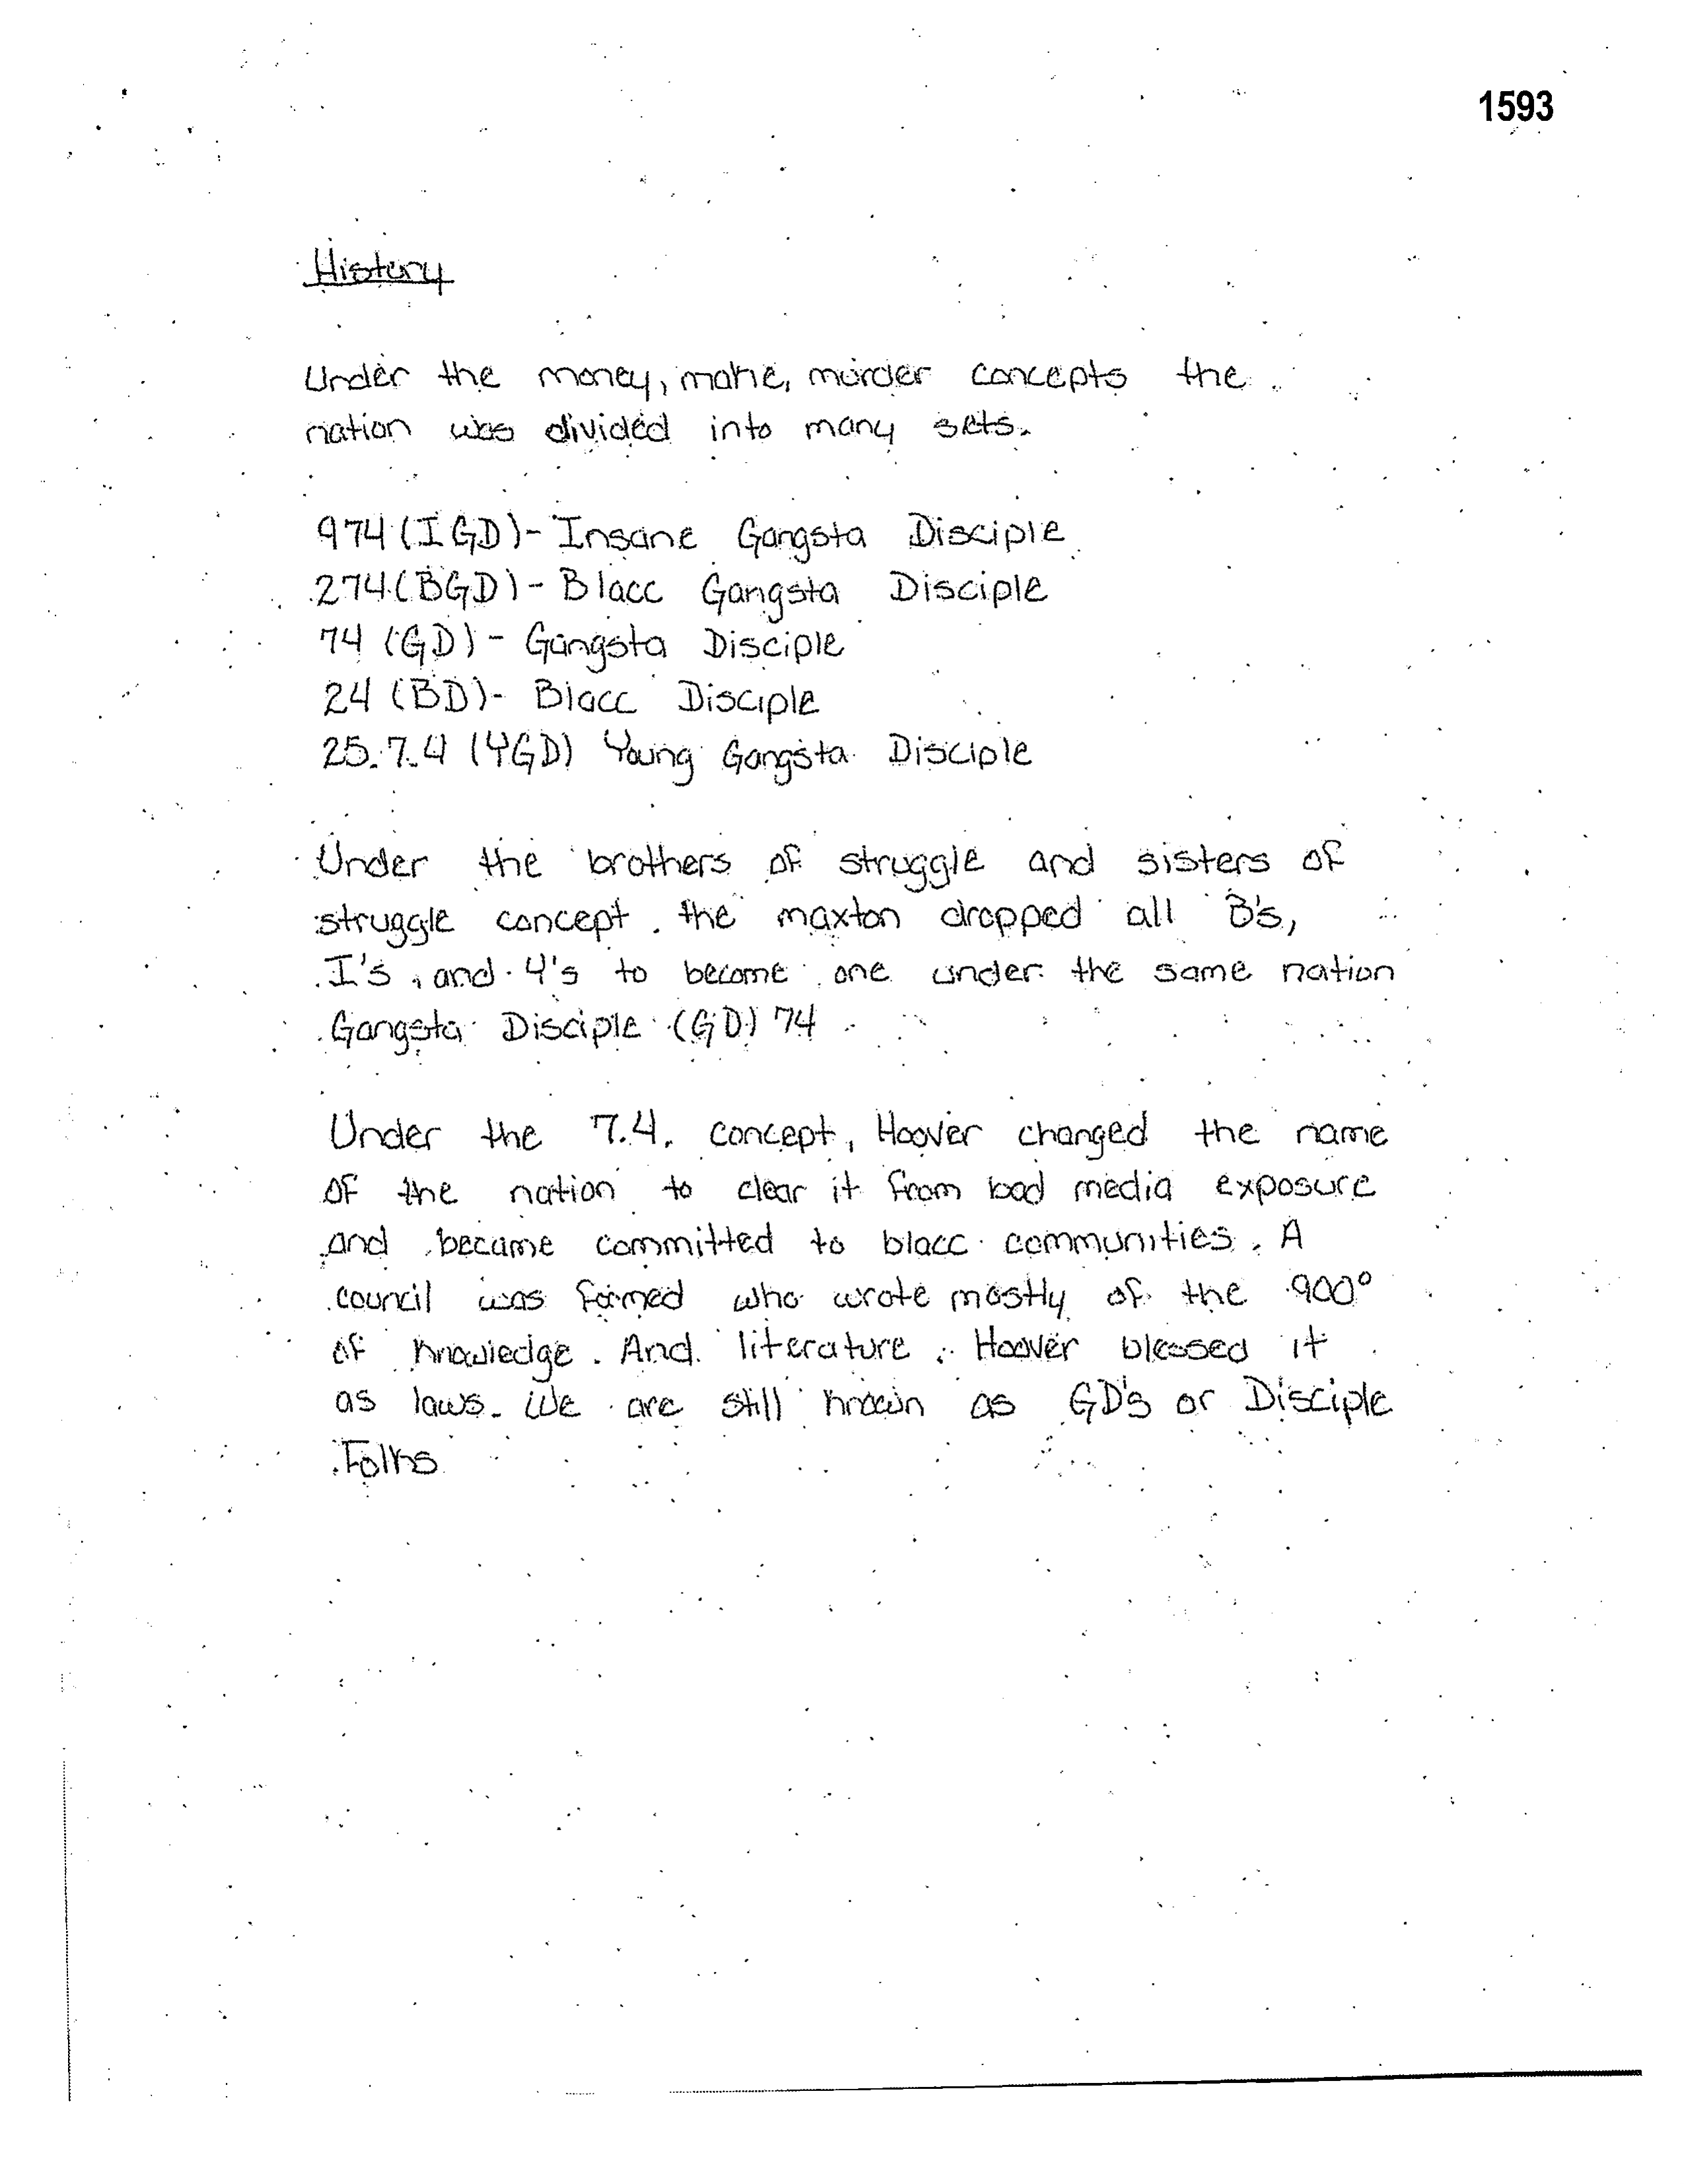 1593
History
Under the money, mahe, murder concepts the
nation was divided into many sets.
974 (IGD) - Insane Gangsta Disciple
274 (BGD) - Blacc Gangsta Disciple
74 (GD) - Gangsta Disciple
24 (BD) - Blacc Disciple
25.7.4 (YGD) Young Gangsta Disciple
Under the brothers of struggle and sisters of
struggle concept. the maxton dropped all B's,
I's, and Y's to become one under the same nation
Gangsta Disciple (GD) 74
Under the 7.4. concept, Hoover changed the name
of the nation to clear it from bad media exposure
and became committed to blacc communities. A
council was formed who wrote mostly of the 900°
of knowledge. And literature. Hoover blessed it
as laws. We are still known as GD's or Disciple
Folks